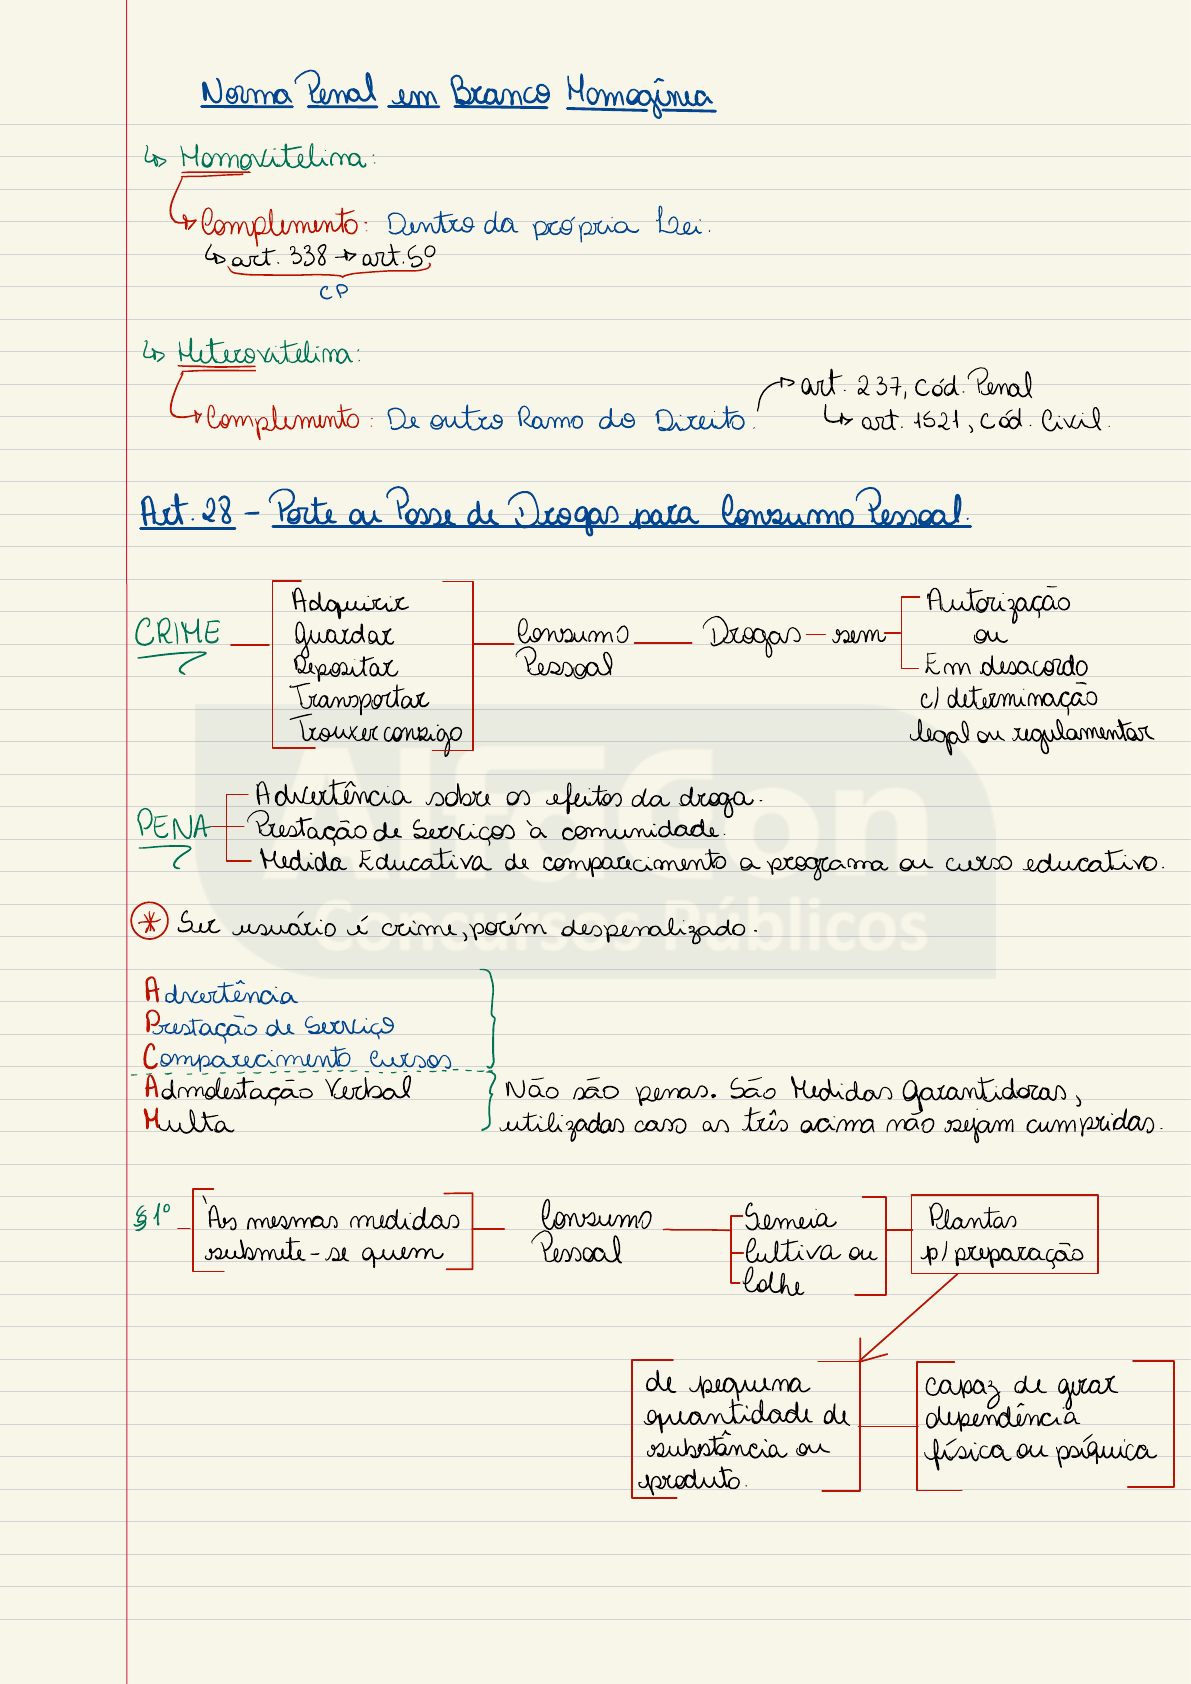 Norma Penal em Branco Homogênea
↳ Homovitelina:
↳ Complemento: Dentro da própria Lei.
↳ art. 338 → art. 5º
CP
↳ Heterovitelina:
↳ Complemento: De outro Ramo do Direito.
→ art. 237, Cód. Penal
↳ art. 1521, Cód. Civil.
Art. 28 - Porte ou Posse de Drogas para Consumo Pessoal.
CRIME
Adquirir
Guardar
Depositar
Transportar
Trouxer consigo
Consumo
Pessoal
Drogas — sem
Autorização
ou
Em desacordo
c/ determinação
legal ou regulamentar
PENA
Advertência sobre os efeitos da droga.
Prestação de Serviços à comunidade.
Medida Educativa de comparecimento a programa ou curso educativo.
* Ser usuário é crime, porém despenalizado.
Advertência
Prestação de Serviço
Comparecimento Cursos
Admolestação Verbal
Multa
Não são penas. São Medidas Garantidoras,
utilizadas caso as três acima não sejam cumpridas.
§1º
Às mesmas medidas
submete-se quem
Consumo
Pessoal
Semeia
Cultiva ou
Colhe
Plantas
p/ preparação
de pequena
quantidade de
substância ou
produto.
capaz de gerar
dependência
física ou psíquica
AlfaCon
Concursos Públicos